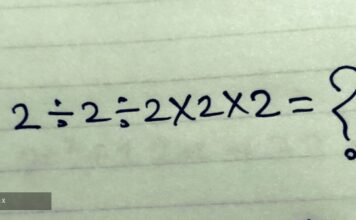 2÷2÷2×2×2=?
x